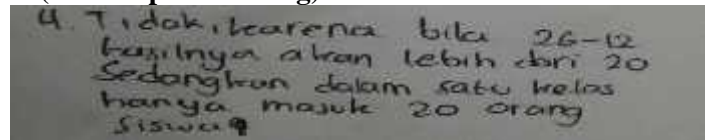 4. Tidak, karena bila 26-12
hasilnya akan lebih dari 20
Sedangkan dalam satu kelas
hanya masuk 20 orang
siswa